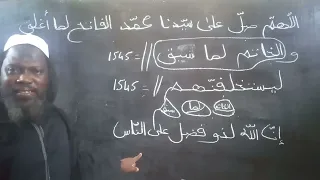 اللهم صل على سيدنا محمد الفاتح لما أغلق
والخاتم لما سبق // = 1545
ليستخلفنهم // = 1545
لما سبق
إن الله لذو فضل على الناس